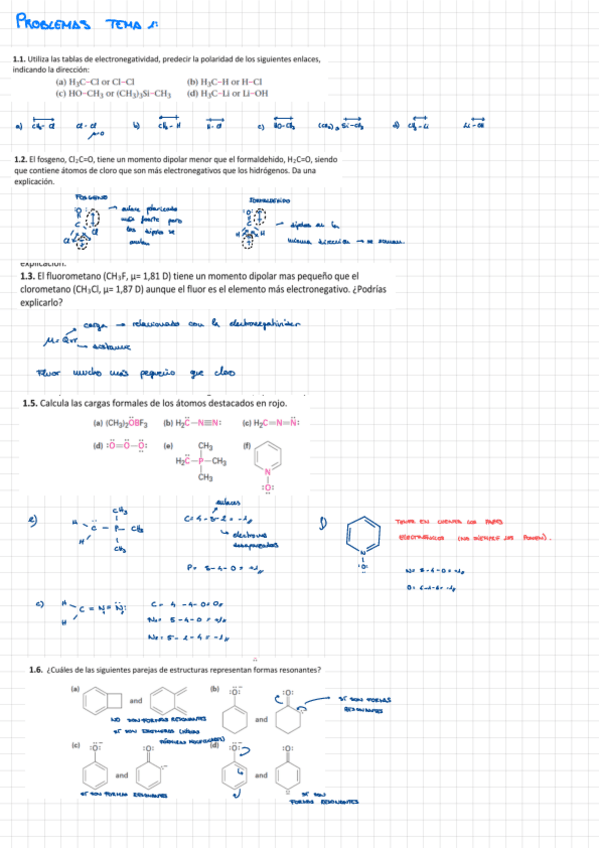 PROBLEMAS TEMA 1:
1.1. Utiliza las tablas de electronegatividad, predecir la polaridad de los siguientes enlaces,
indicando la dirección:
(a) H₃C–Cl or Cl–Cl (b) H₃C–H or H–Cl
(c) HO–CH₃ or (CH₃)₃Si–CH₃ (d) H₃C–Li or Li–OH
a) CH₃-Cl Cl-Cl b) CH₃-H c) HO-CH₃ (CH₃)₃Si-CH₃ d) CH₃-Li Li-OH
μ=0
1.2. El fosgeno, Cl₂C=O, tiene un momento dipolar menor que el formaldehido, H₂C=O, siendo
que contiene átomos de cloro que son más electronegativos que los hidrógenos. Da una
explicación.
FOSGENO FORMALDEHIDO
enlace polarizado
más fuerte pero
los dipolos se
anulan
dipolos en la
misma dirección → se suman
explicación.
1.3. El fluorometano (CH₃F, μ= 1,81 D) tiene un momento dipolar mas pequeño que el
clorometano (CH₃Cl, μ= 1,87 D) aunque el fluor es el elemento más electronegativo. ¿Podrías
explicarlo?
carga → relacionado con la electronegatividad
μ = Q·r
distancia
Fluor mucho más pequeño que cloro
1.5. Calcula las cargas formales de los átomos destacados en rojo.
(a) (CH₃)₂ÖBF₃ (b) H₂C̈–N≡N: (c) H₂C=N=N̈:
(d) :Ö=Ö–Ö: (e) CH₃ (f)
H₂C̈–P–CH₃
CH₃ N
:O:
enlaces
e) CH₃ C=4-3-2=-1
H C̈ - P - CH₃ electrones
H CH₃ desapareados
P= 5-4-0=+1
f) N :O:
TENER EN CUENTA LOS PARES
ELECTRÓNICOS (NO SIEMPRE LOS PONEN).
N= 5-4-0=+1
c) H C = N = N̈: C= 4-4-0=0
H N₁= 5-4-0=+1
N₂= 5-2-4=-1
1.6. ¿Cuáles de las siguientes parejas de estructuras representan formas resonantes?
(a) and (b) :Ö:⁻ and :O:
SÍ SON FORMAS
RESONANTES
NO SON FORMAS RESONANTES
SÍ SON ISÓMEROS (MISMA
FÓRMULA MOLECULAR)
(c) :Ö:⁻ and :O: (d) :Ö:⁻ and :O:
SÍ SON FORMAS RESONANTES
SÍ SON
FORMAS RESONANTES